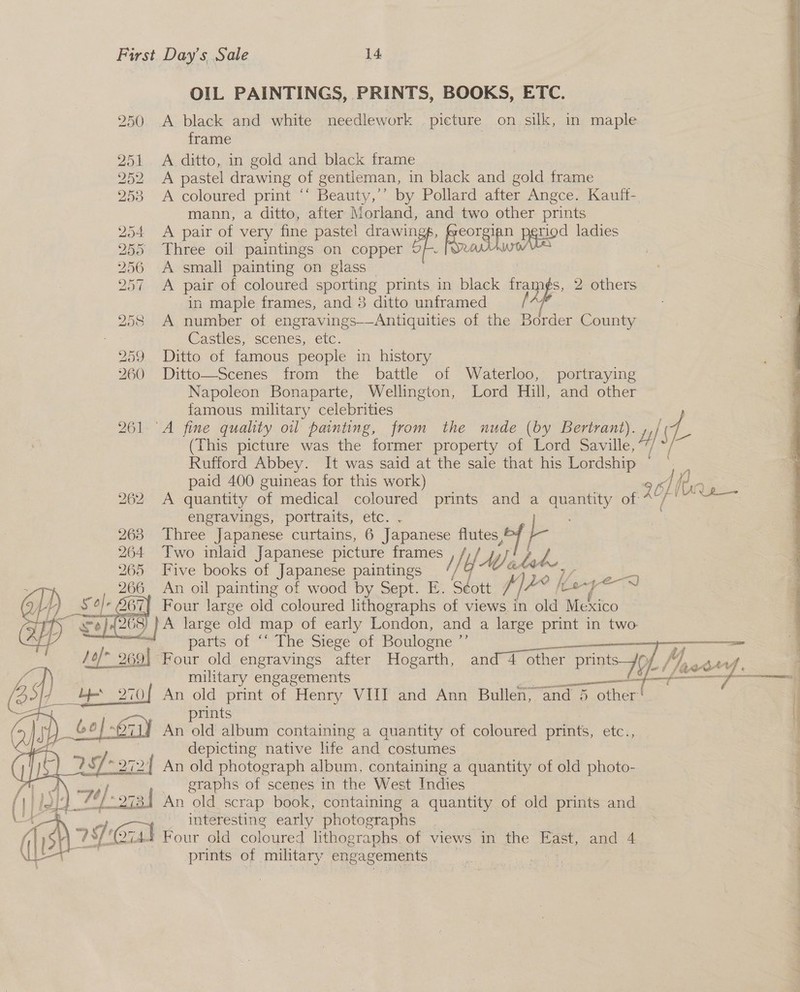 First Day's Sale 14
OIL PAINTINGS, PRINTS, BOOKS, ETC.
250 A black and white needlework picture on silk, in maple
frame
251 A ditto, in gold and black frame
252 A pastel drawing of gentleman, in black and gold frame
253 A coloured print “ Beauty,” by Pollard after Angce. Kauff-
mann, a ditto, after Morland, and two other prints
254 A pair of very fine pastel drawings, Georgian period ladies
255 Three oil paintings on copper 5/-
256 A small painting on glass
257 A pair of coloured sporting prints in black frames, 2 others
in maple frames, and 3 ditto unframed
258 A number of engravings—Antiquities of the Border County
Castles, scenes, etc.
259 Ditto of famous people in history
260 Ditto—Scenes from the battle of Waterloo, portraying
Napoleon Bonaparte, Wellington, Lord Hill, and other
famous military celebrities
261 A fine quality oil painting, from the nude (by Bertrant).
(This picture was the former property of Lord Saville,
Rufford Abbey. It was said at the sale that his Lordship
paid 400 guineas for this work)
262 A quantity of medical coloured prints and a quantity of
engravings, portraits, etc.
263 Three Japanese curtains, 6 Japanese flutes
264 Two inlaid Japanese picture frames
265 Five books of Japanese paintings
266 An oil painting of wood by Sept. E. Scott
50/- 267 Four large old coloured lithographs of views in old Mexico
268 A large old map of early London, and a large print in two
parts of “ The Siege of Boulogne ”
10/- 269 Four old engravings after Hogarth, and 4 other prints
military engagements
270 An old print of Henry VIII and Ann Bullen, and 5 other
prints
60/- 271 An old album containing a quantity of coloured prints, etc.,
depicting native life and costumes
25/- 272 An old photograph album, containing a quantity of old photo-
graphs of scenes in the West Indies
70/- 273 An old scrap book, containing a quantity of old prints and
interesting early photographs
75/- 274 Four old coloured lithographs of views in the East, and 4
prints of military engagements